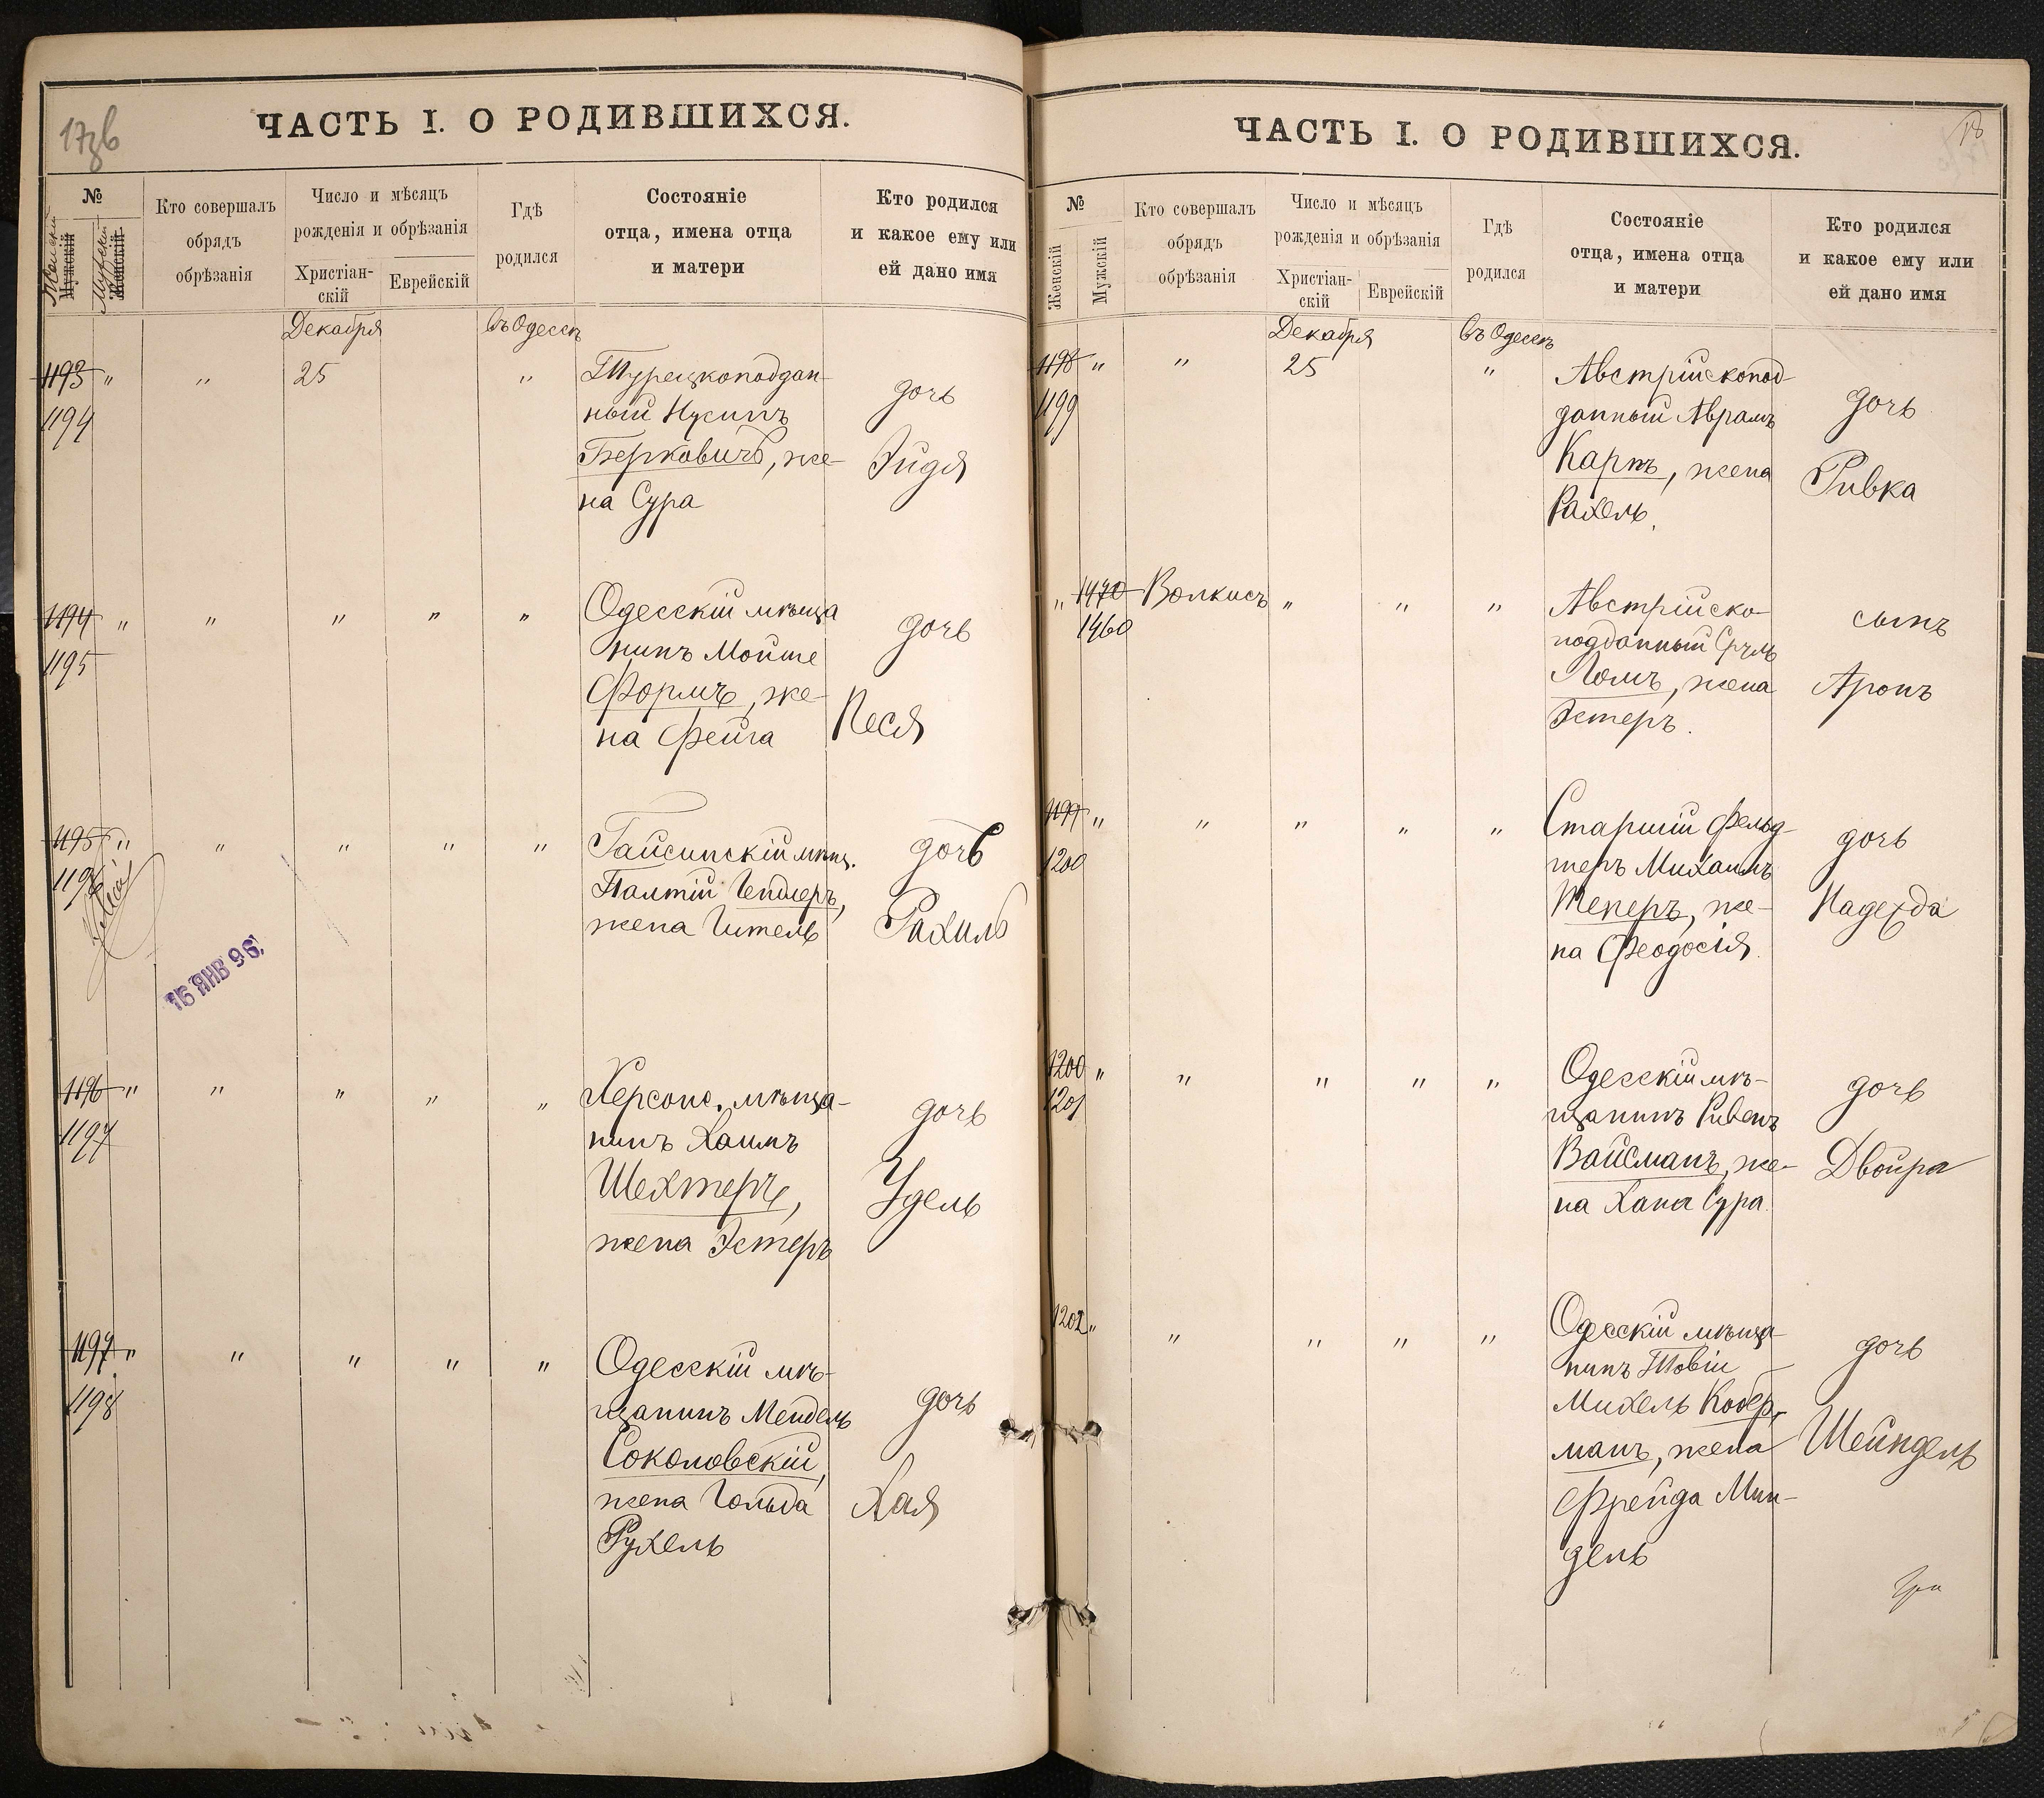 17зв
ЧАСТЬ I. О РОДИВШИХСЯ.
№
Женскій
Мужскій
Мужскій
Женскій
Кто совершалъ
обрядъ
обрѣзанія
Число и мѣсяцъ
рожденія и обрѣзанія
Христіан-
скій
Еврейскій
Гдѣ
родился
Состояніе
отца, имена отца
и матери
Кто родился
и какое ему или
ей дано имя
Декабря
въ Одессѣ
1193 " " 25 "
1194
Турецкоподдан-
ный Нусинъ
Берковичъ, же-
на Сура
дочь
Эйдя
1194 " " " " "
1195
Одесскій мѣща
нинъ Мойше
Формъ, же-
на Фейга
дочь
Песя
1195 " " " " "
1196
Гайсинскій мѣщ.
Палтій Гендлеръ,
жена Гитель
дочь
Рахиль
15 ЯНВ 96.
1196 " " " " "
1197
Херсонс. мѣща-
нинъ Хаимъ
Шехтеръ,
жена Эстеръ
дочь
Удель
1197 " " " " "
1198
Одесскій мѣ-
щанинъ Мендель
Соколовскій,
жена Гольда
Рухель
дочь
Хая
18
ЧАСТЬ I. О РОДИВШИХСЯ.
№
Женскій
Мужскій
Кто совершалъ
обрядъ
обрѣзанія
Число и мѣсяцъ
рожденія и обрѣзанія
Христіан-
скій
Еврейскій
Гдѣ
родился
Состояніе
отца, имена отца
и матери
Кто родился
и какое ему или
ей дано имя
Декабря
въ Одессѣ
1198 " " 25 "
1199
Австрійскопод-
данный Аврамъ
Карпъ, жена
Рахель.
дочь
Ривка
" 1470 Волкисъ " " "
1460
Австрійско-
подданный Сруль
Ломъ, жена
Эстеръ.
сынъ
Аронъ
1199 " " " " "
1200
Старшій фельд-
шеръ Михаилъ
Текеръ, же-
на Феодосія.
дочь
Надежда
1200 " " " " "
1201
Одесскій мѣ-
щанинъ Рувенъ
Вайсманъ, же-
на Хана Сура.
дочь
Двойра
1202 " " " " "
Одесскій мѣща-
нинъ Товій
Михель Кобер-
манъ, жена
Фрейда Мин-
дель
дочь
Шейндель